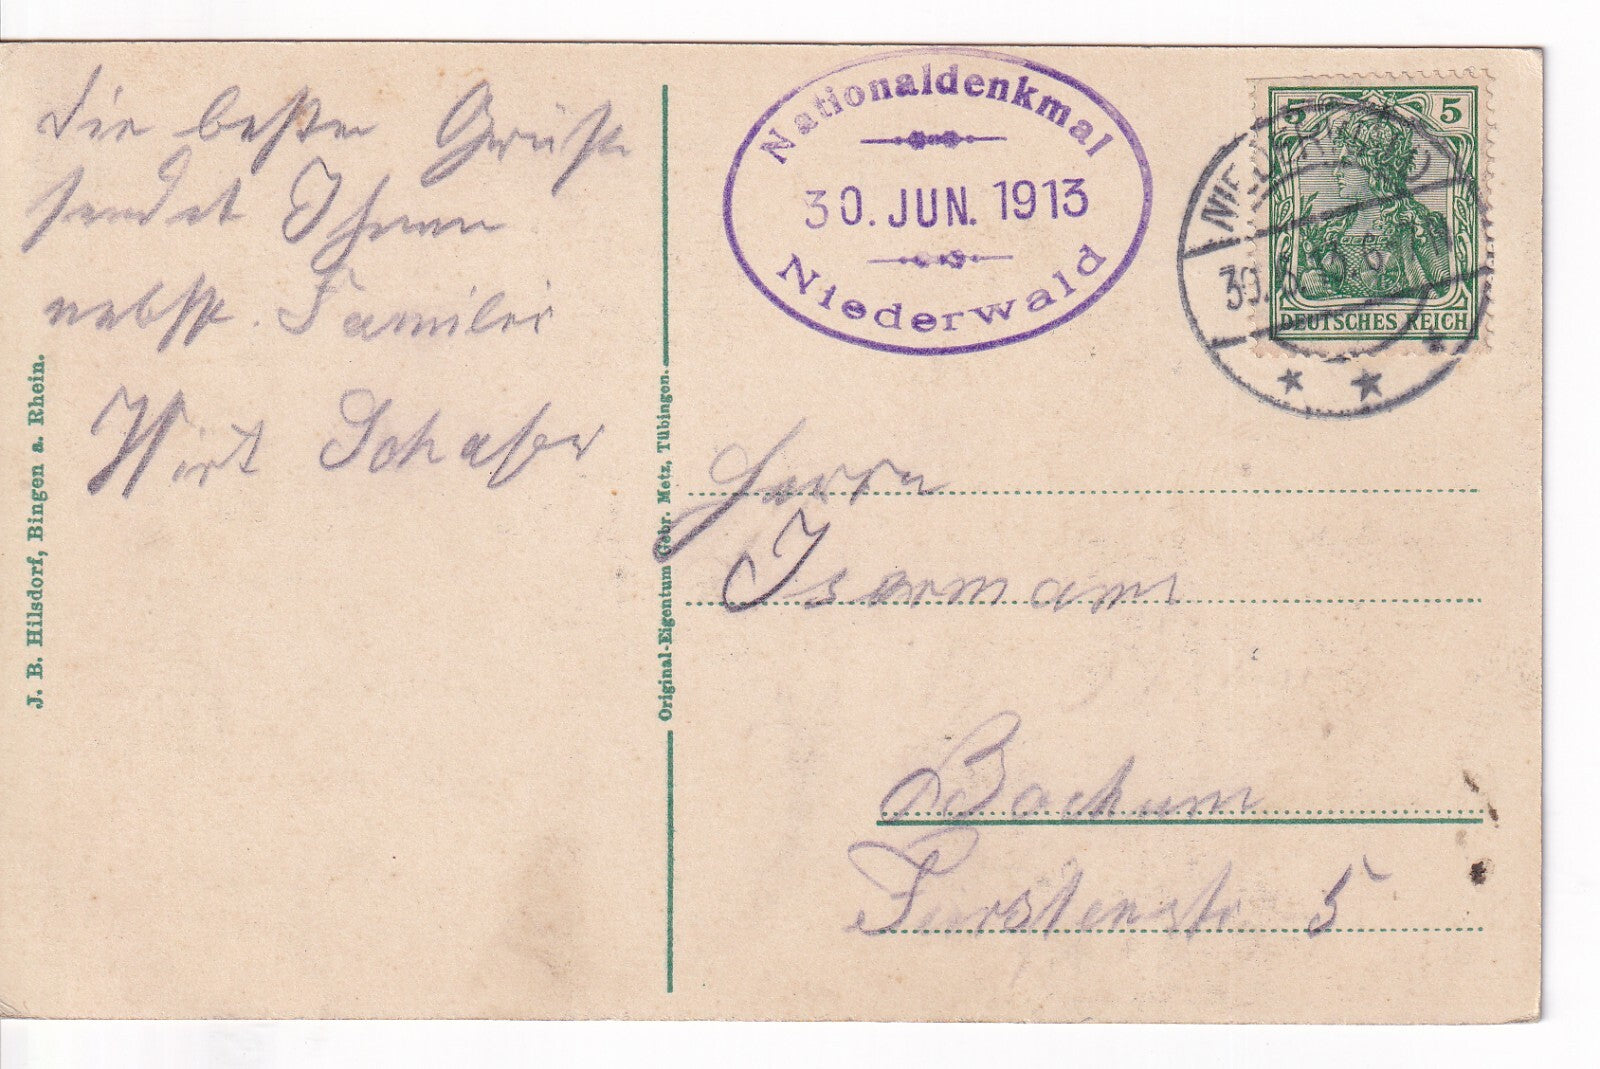 Die besten Grüße
sendet Ihnen
nebst Familie
Wirt Schafer
J. B. Hilsdorf, Bingen a. Rhein.
Original-Eigentum Gebr. Metz, Tübingen.
Nationaldenkmal
30. JUN. 1913
Niederwald
5 5
DEUTSCHES REICH
Herrn
Isermann
Bochum
Furstenstr 5